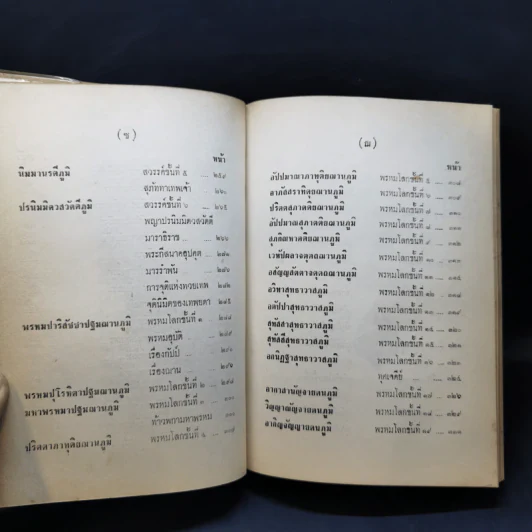 (ช)
หน้า
นิมมานรดีภูมิ สวรรค์ชั้นที่ ๕
สุภัททาเทพเจ้า
ปรนิมมิตวสวัตตีภูมิ สวรรค์ชั้นที่ ๖
พญาปรนิมมิตวสวัตตี
มาราธิราช
พระกีสนาคอุปคุต
มารรำพัน
การจุติแห่งทวยเทพ
จุตินิมิตของเทพยดา
พรหมปาริสัชชาปฐมฌานภูมิ พรหมโลกชั้นที่ ๑
พรหมอุบัติ
เรื่องกัปป์
เรื่องฌาน
พรหมปุโรหิตาปฐมฌานภูมิ พรหมโลกชั้นที่ ๒
มหาพรหมาปฐมฌานภูมิ พรหมโลกชั้นที่ ๓
ท้าวพกามหาพรหม
ปริตตาภาทุติยฌานภูมิ พรหมโลกชั้นที่ ๔
(ฌ)
หน้า
อัปปมาณาภาทุติยฌานภูมิ พรหมโลกชั้นที่ ๕
อาภัสสราทุติยฌานภูมิ พรหมโลกชั้นที่ ๖
ปริตตสุภาตติยฌานภูมิ พรหมโลกชั้นที่ ๗
อัปปมาณสุภาตติยฌานภูมิ พรหมโลกชั้นที่ ๘
สุภกิณหาตติยฌานภูมิ พรหมโลกชั้นที่ ๙
เวหัปผลาจตุตถฌานภูมิ พรหมโลกชั้นที่ ๑๐
อสัญญสัตตาจตุตถฌานภูมิ พรหมโลกชั้นที่ ๑๑
อวิหาสุทธาวาสภูมิ พรหมโลกชั้นที่ ๑๒
อตัปปาสุทธาวาสภูมิ พรหมโลกชั้นที่ ๑๓
สุทัสสาสุทธาวาสภูมิ พรหมโลกชั้นที่ ๑๔
สุทัสสีสุทธาวาสภูมิ พรหมโลกชั้นที่ ๑๕
อกนิฏฐาสุทธาวาสภูมิ พรหมโลกชั้นที่ ๑๖
ทุสเจดีย์
อากาสานัญจายตนภูมิ พรหมโลกชั้นที่ ๑๗
วิญญาณัญจายตนภูมิ พรหมโลกชั้นที่ ๑๘
อากิญจัญญายตนภูมิ พรหมโลกชั้นที่ ๑๙